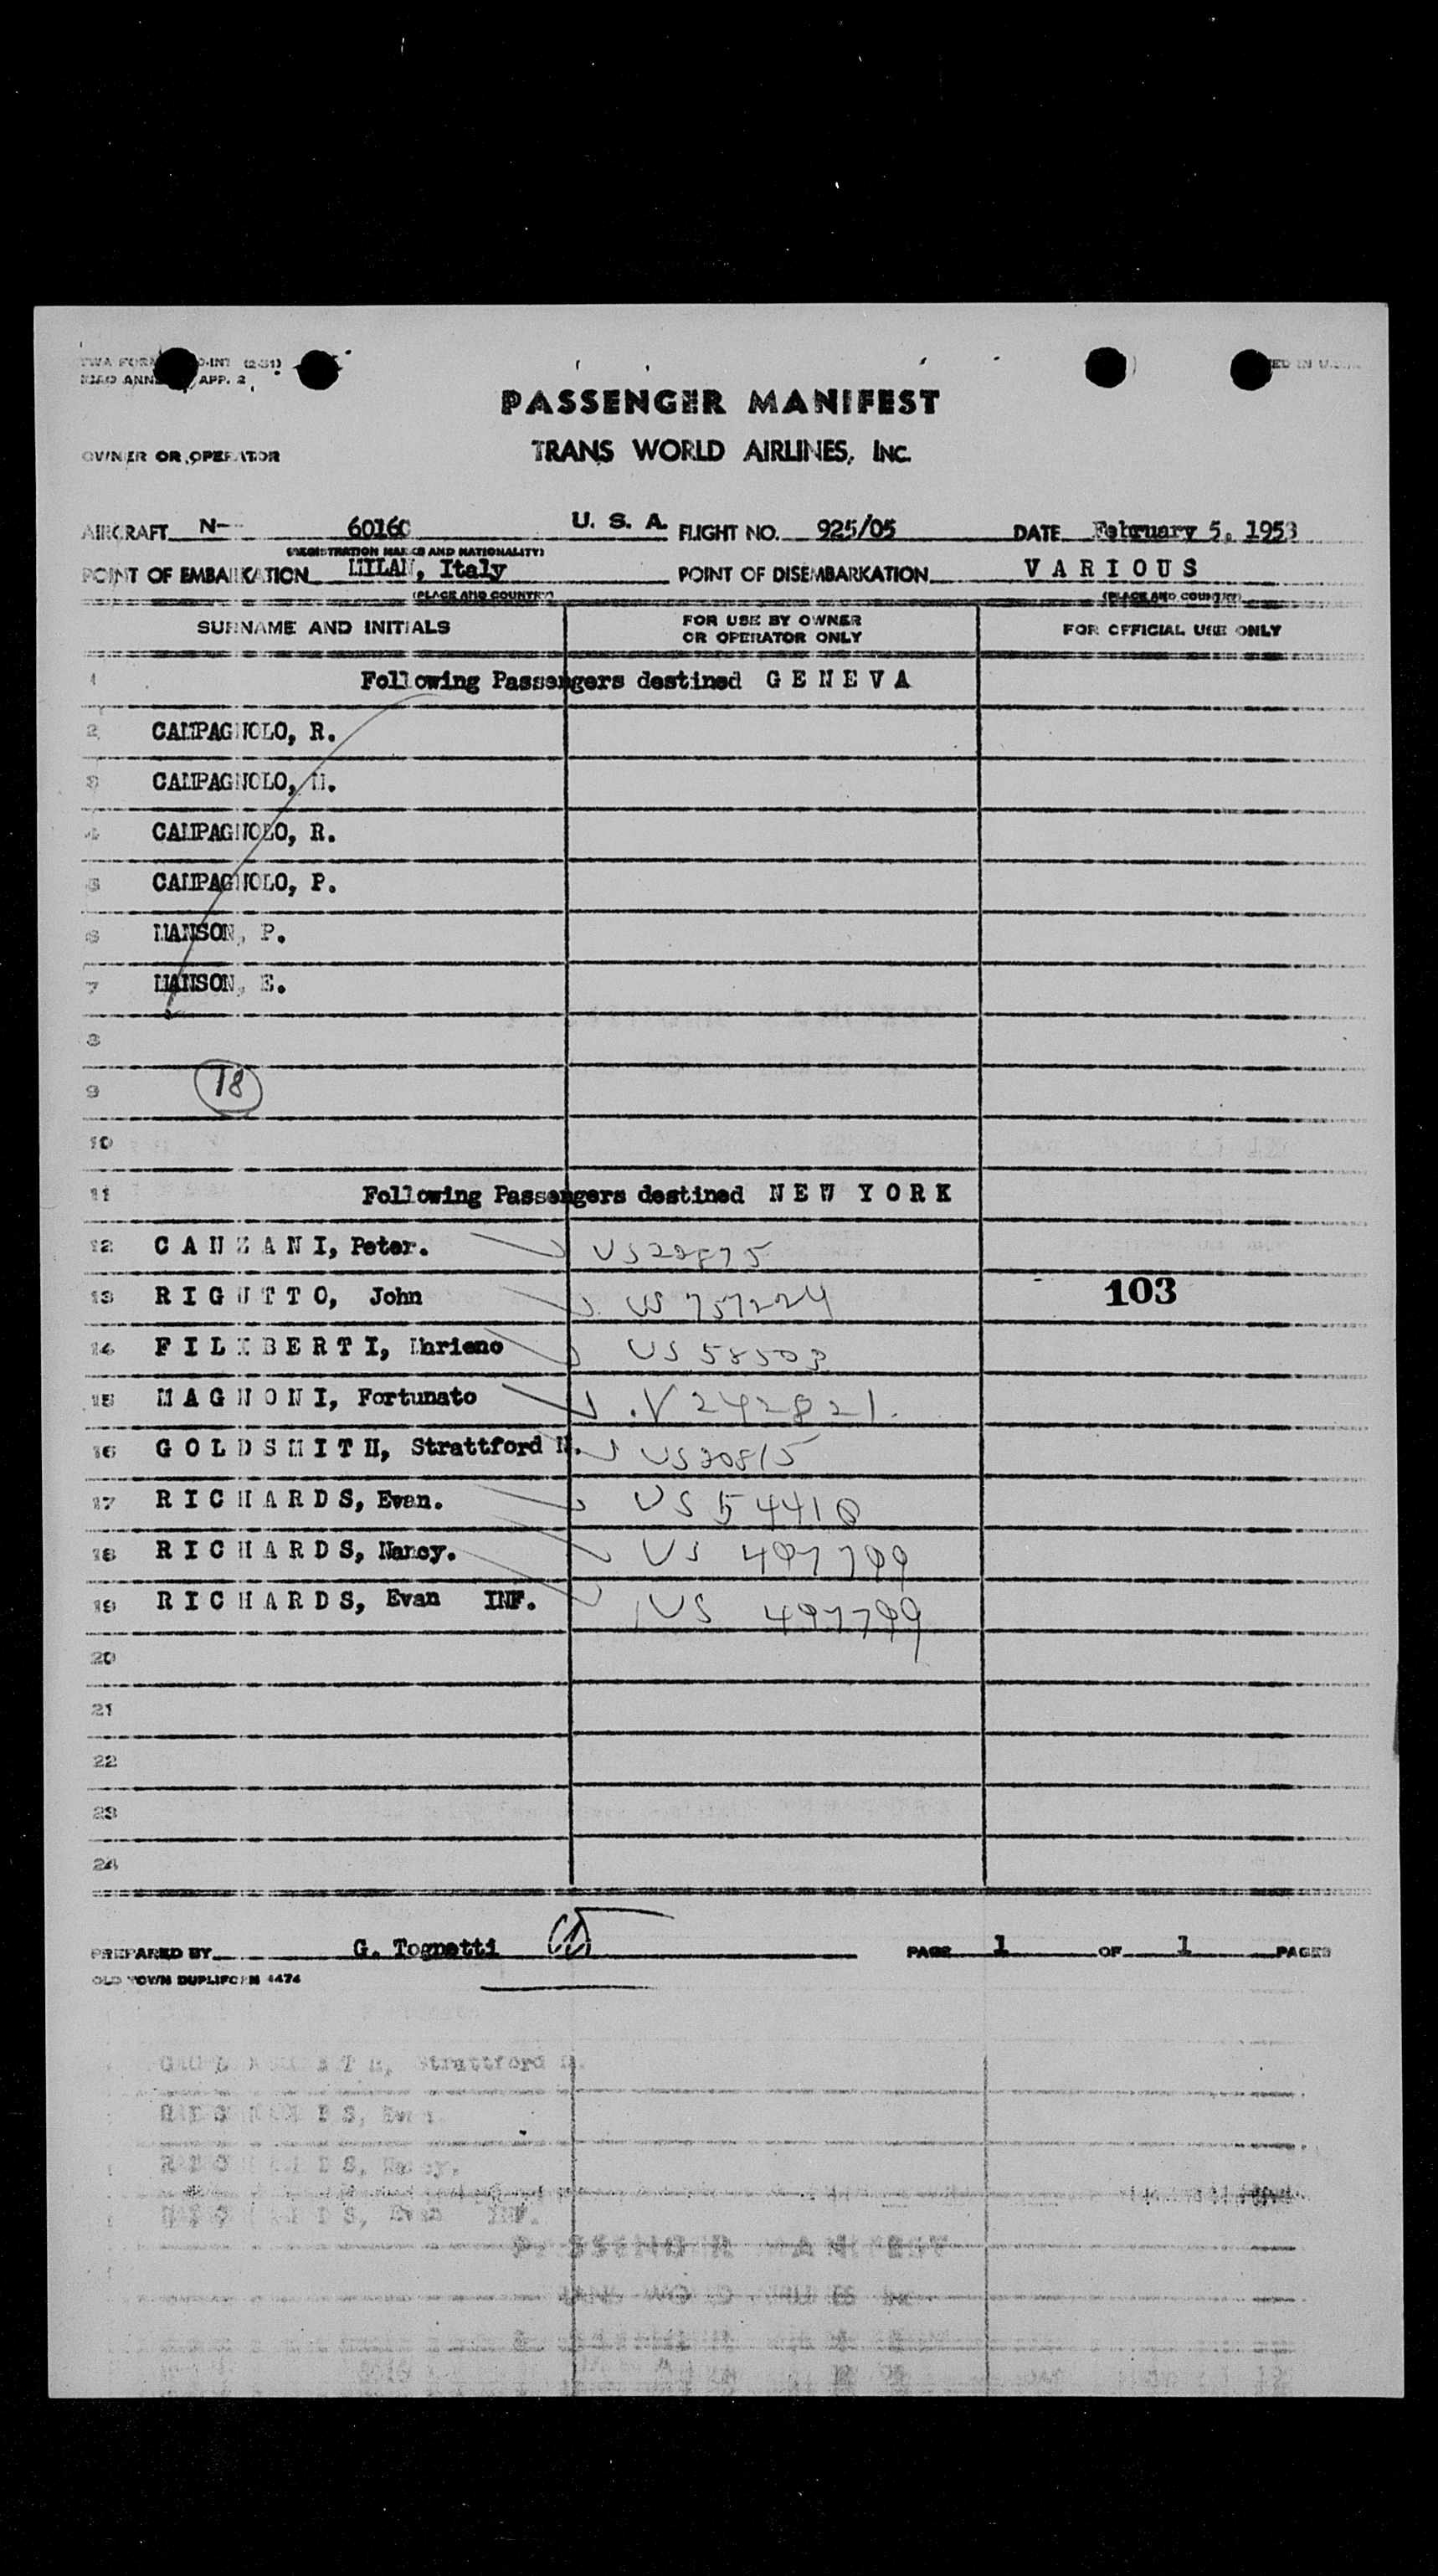 TWA FORM
ICAO ANNEX APP. 2
PASSENGER MANIFEST
OWNER OR OPERATOR TRANS WORLD AIRLINES, INC.
AIRCRAFT N- 6016C U. S. A. FLIGHT NO. 925/05 DATE February 5, 1953
(REGISTRATION MARKS AND NATIONALITY)
POINT OF EMBARKATION MILAN, Italy POINT OF DISEMBARKATION VARIOUS
(PLACE AND COUNTRY) (PLACE AND COUNTRY)
SURNAME AND INITIALS FOR USE BY OWNER OR OPERATOR ONLY FOR OFFICIAL USE ONLY
1 Following Passengers destined GENEVA
2 CAMPAGNOLO, R.
3 CAMPAGNOLO, M.
4 CAMPAGNOLO, R.
5 CAMPAGNOLO, P.
6 MANSON, P.
7 MANSON, E.
8
9 18
10
11 Following Passengers destined NEW YORK
12 CANZANI, Peter. US20875
13 RIGUTTO, John US 757224 103
14 FILIBERTI, US 58503
15 MAGNONI, Fortunato V 242821.
16 GOLDSMITH, Strattford M. US20815
17 RICHARDS, Evan. US 54410
18 RICHARDS, Nancy. US 497799
19 RICHARDS, Evan INF. US 497799
20
21
22
23
24
PREPARED BY G. Tognetti PAGE 1 OF 1 PAGES
OLD TOWN DUPLIFORM 4474